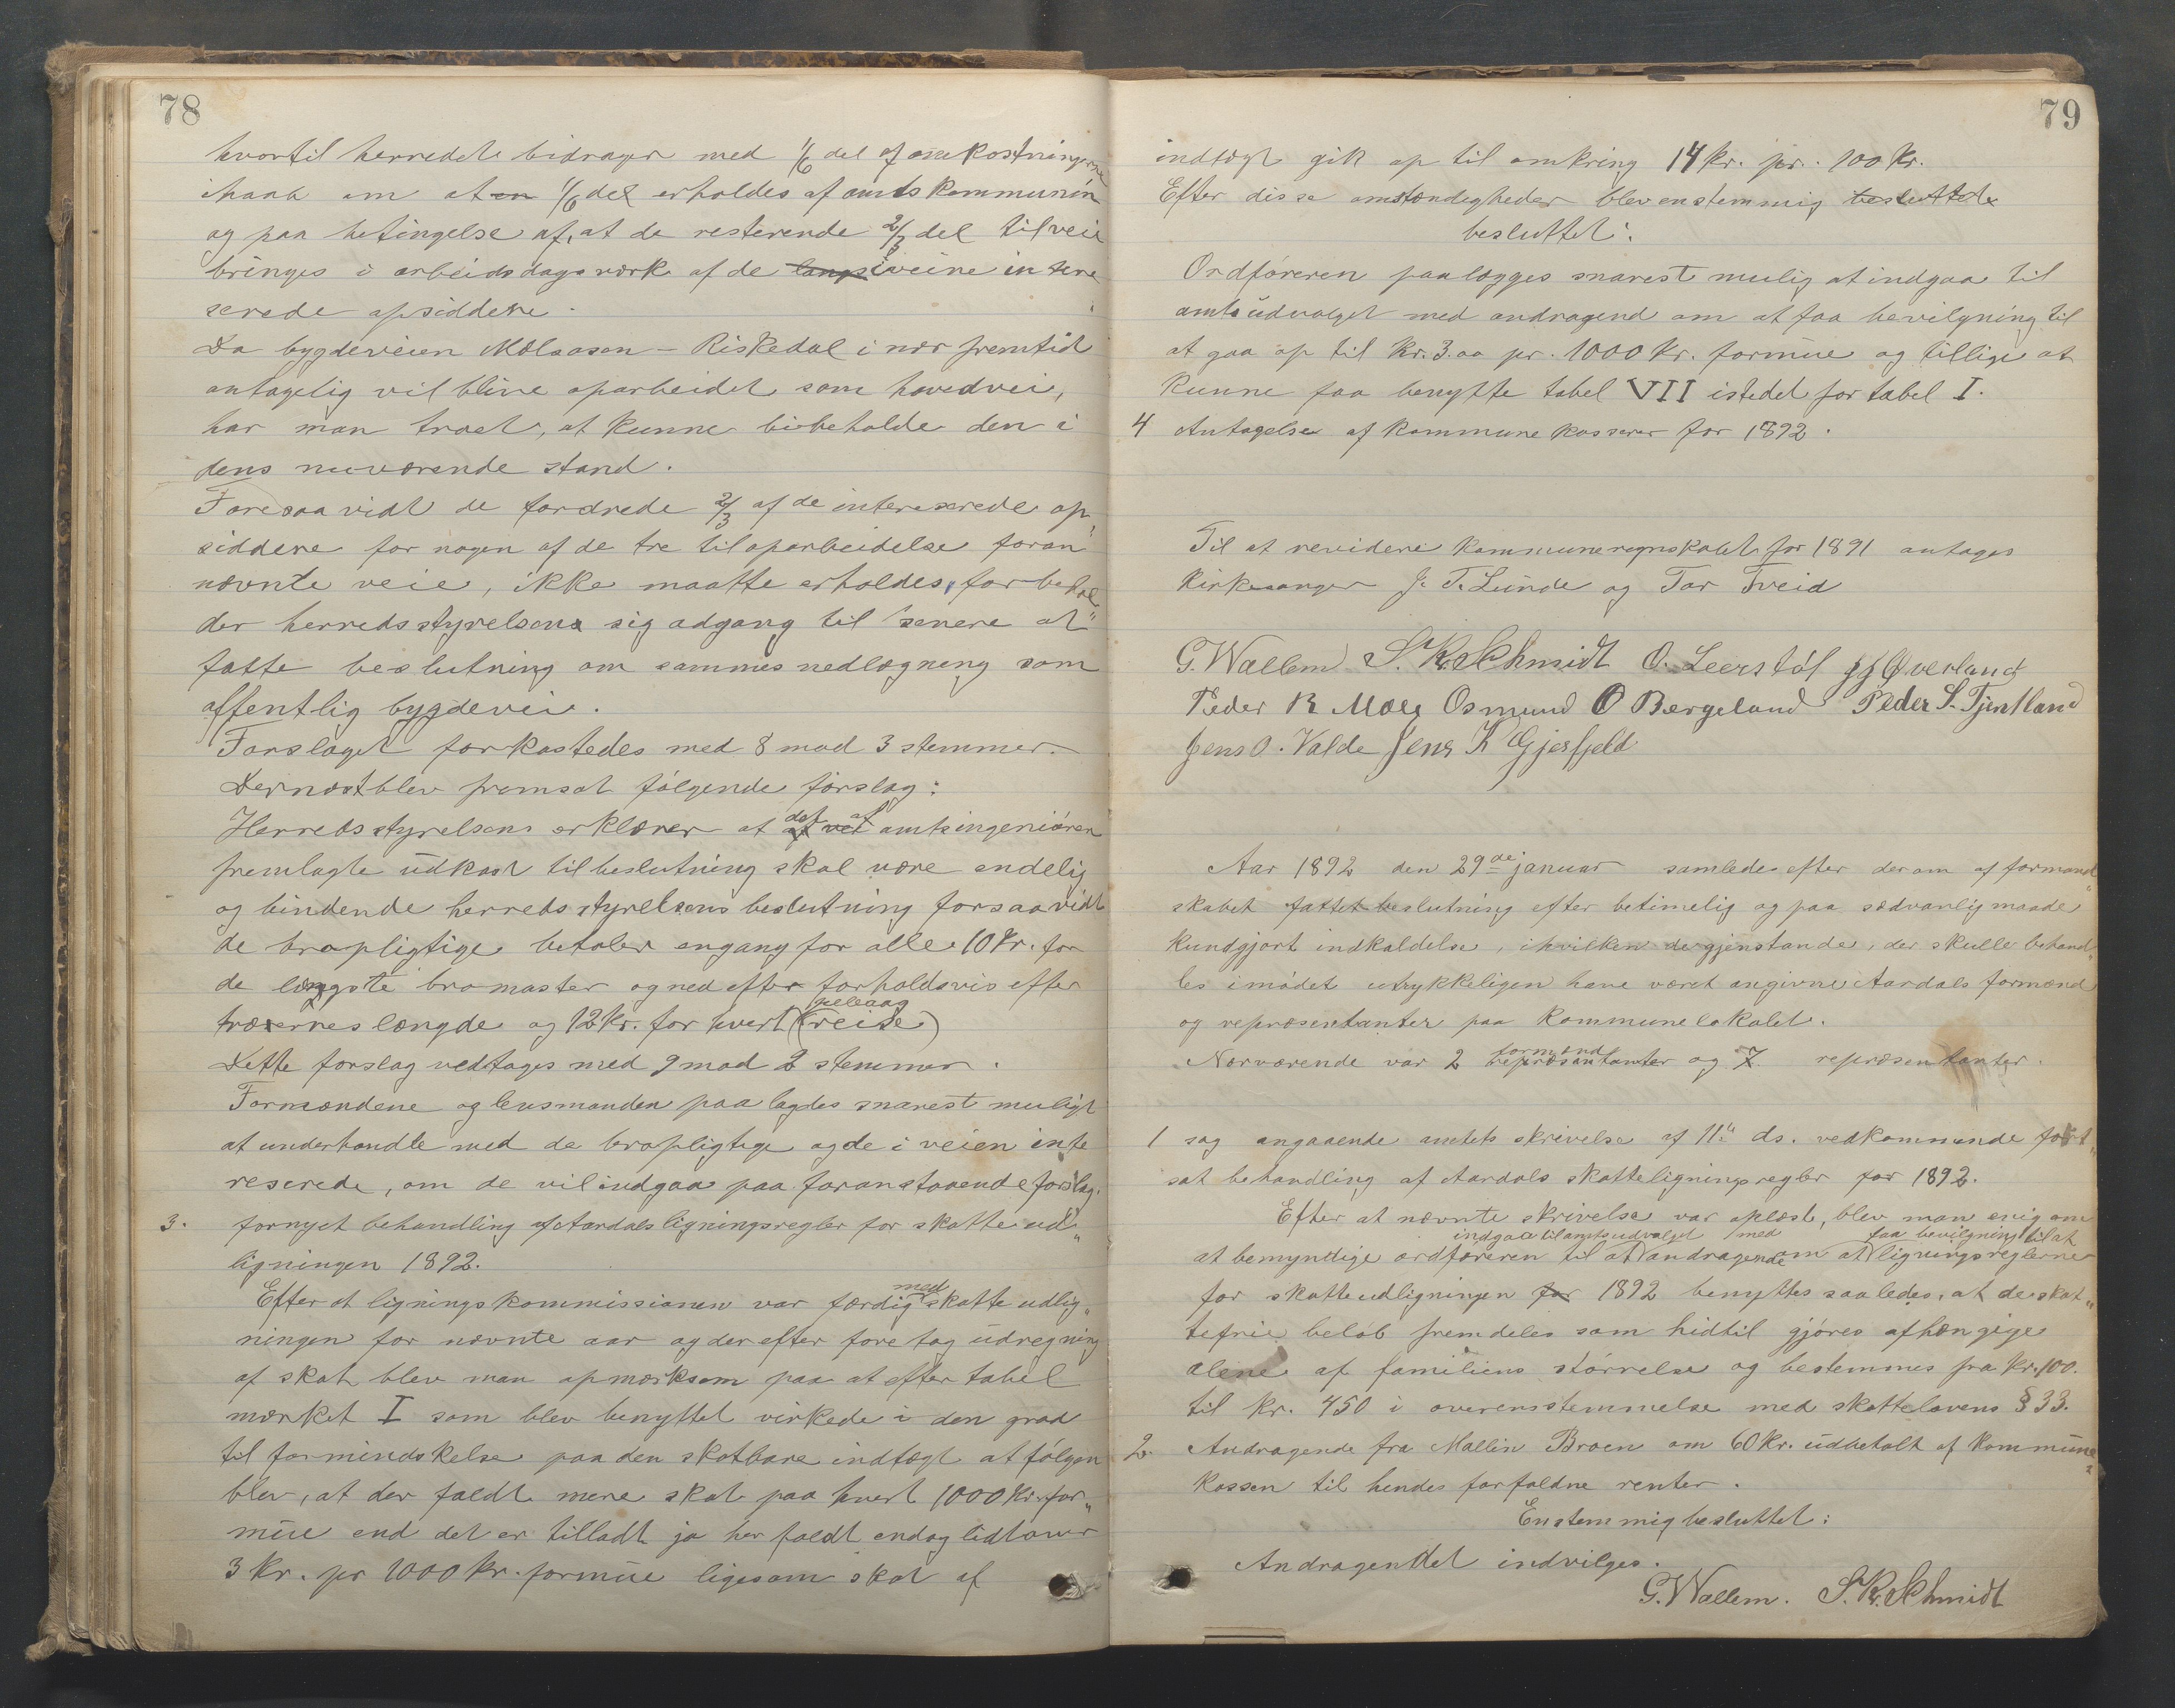 78
hvortil herredet bidrager med 1/6 del af omkostningerne
ihaab om at en 1/6 del erholdes af amtskommunen
og paa betingelse af, at de resterende 2/3 del tilveie
bringes i arbeidsdagsværk af de langs iveine intere
serede opsiddere.
Da bygdeveien Mælaasen – Riskedal i nær fremtid
antagelig vil blive oparbeidet som hovedvei,
har man troet, at kunne bibeholde den i
dens nuværende stand.
Foresaavidt de fordrede 2/3 af de interesserede op„
siddere for nogen af de tre til oparbeidelse foran„
nævnte veie, ikke maatte erholdes, forbehol„
der herredsstyrelsen sig adgang til senere at
fatte beslutning om sammes nedlægning som
offentlig bygdevei.
Forslaget forkastedes med 8 mod 3 stemmer.
Dernæst blev fremsat følgende forslag:
Herredsstyrelsen erklærer at det af amtsingeniøren
fremlagte udkast til beslutning skal være endelig
og bindende herredsstyrelsens beslutning forsaavidt
de bropligtige betaler engang for alle 10 Kr. for
de længste bromaster og nedefter forholdsvis efter
træernes længde og 12 Kr. for hvert (reise)
Dette forslag vedtages med 9 mod 2 stemmer.
Formændene og lensmanden paalagdes snarest muligt
at underhandle med de bropligtige og de i veien inte
reserede, om de vil indgaa paa foranstaaende forslag.
3. fornyet behandling af Aardals ligningsregler for skatteud„
ligningen 1892.
Efter at ligningskommissionen var færdig med skatteudlig„
ningen for nævnte aar og derefter foretog udregning
af skat blev man opmærksom paa at efter tabel
mærket I som blev benyttet virkede i den grad
til formindskelse paa den skatbare indtægt at følgen
blev, at der faldt mere skat paa hvert 1000 Kr. for„
mue end det er tilladt ja her faldt endog lidt over
3 Kr. pr 1000 Kr. formue ligesom skat af
79
indtægt gik op til omkring 14 Kr. pr. 100 Kr.
Efter disse omstændigheder blev enstemmig besluttet
besluttet:
Ordføreren paalægges snarest mulig at indgaa til
amtsudvalget med andragend om at faa bevilgning til
at gaa op til Kr. 3.00 pr. 1000 Kr. formue og tillige at
kunne faa benytte tabel VII istedet for tabel I.
4 Antagelse af kommunekasserer for 1892.
Til at revidere kommuneregnskabet for 1891 antages
Kirkesanger J. T. Lunde og Tor Tveid
G. Wallem S. K. Schmidt O. Leerstøl J J Øverland
Peder R Mæle Osmund O Bergeland Peder S. Tjentland
Jens O. Valde Jens K Gjesfjeld
Aar 1892 den 29de januar samledes efter derom af formand„
skabet fattet beslutning efter betimelig og paa sædvanlig maade
kundgjort indkaldelse, i hvilken de gjenstande, der skulle behand„
les i mødet utrykkeligen have været angivne Aardals formænd
og repræsentanter paa kommunelokalet.
Nærværende var 2 formænd repræsentanter og 7 repræsentanter.
1 sag angaaende amtets skrivelse af 11" ds. vedkommende fort„
sat behandling af Aardals skatteligningsregler for 1892.
Efter at nævnte skrivelse var oplæst, blev man enig om
indgaa til amtsudvalget med faa bevilgning til at
at bemyndige ordføreren til at andragende om at ligningsreglerne
for skatteudligningen for 1892 benyttes saaledes, at de skat„
tefrie beløb fremdeles som hidtil gjøres afhængige
alene af familiens størrelse og bestemmes fra Kr. 100.
til Kr. 450 i overensstemmelse med skattelovens § 33.
2. Andragende fra Mallin Broen om 60 Kr. udbetalt af kommune„
kassen til hendes forfaldne renter.
Enstemmig besluttet:
Andragendet indvilges.
G. Wallem. S. K. Schmidt